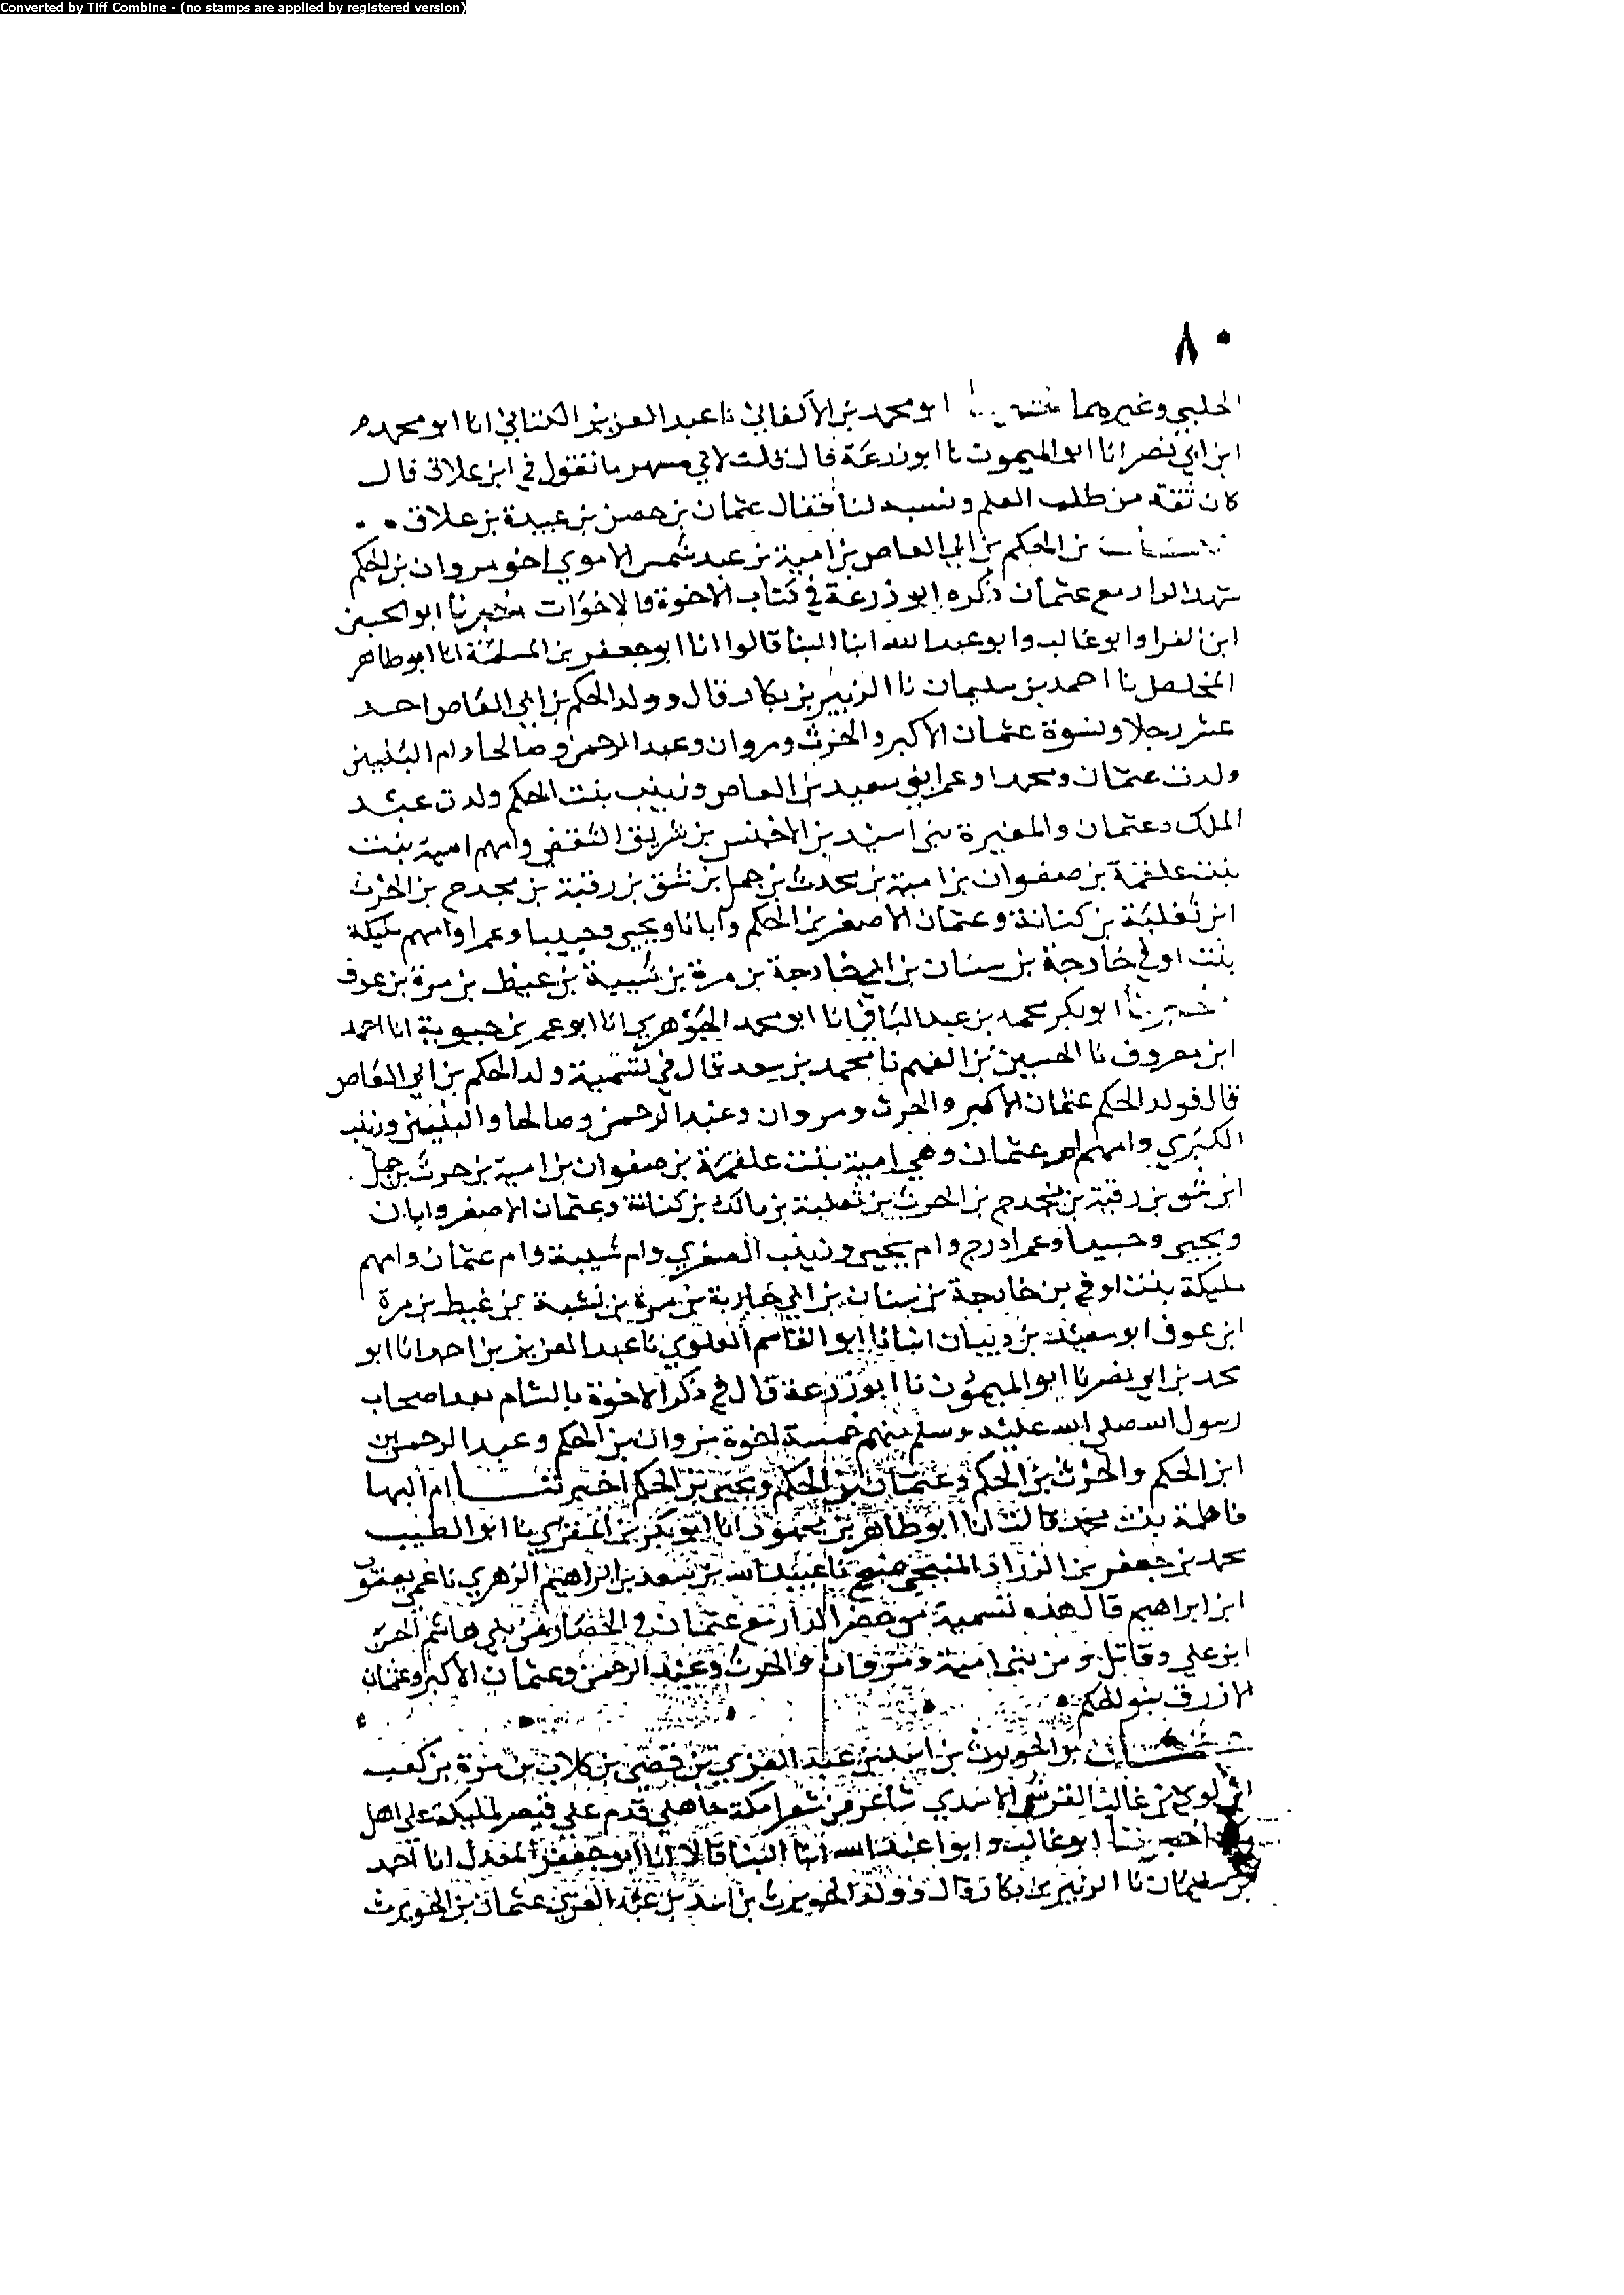 Converted by Tiff Combine - (no stamps are applied by registered version)
٨٠
الحلبي وغيرهما ابو محمد بن الاكفاني نا عبد العزيز الكتاني انا ابو محمد
ابن ابي نصر انا ابو الميمون نا ابو زرعة قال قلت لابي مسهر ما تقول في ابن علاق قال
كان ثقة من طلب العلم ونسبه لنا فقال عثمان بن حصن بن عبيدة بن علاق
بن الحكم بن ابي العاص بن امية بن عبد شمس الاموي اخو مروان بن الحكم
شهد الدار مع عثمان ذكره ابو زرعة في كتاب الاخوة والاخوات اخبرنا ابو الحسين
ابن الفرا وابو غالب وابو عبد الله ابنا البنا قالوا انا ابو جعفر بن المسلمة انا ابو طاهر
المخلص نا احمد بن سليمان نا الزبير بن بكار قال وولد الحكم بن ابي العاص احد
عشر رجلا ونسوة عثمان الاكبر والحرث ومروان وعبد الرحمن وصالحا وام البنين
ولدت عثمان ومحمدا وعمرا بني سعيد بن العاص وزينب بنت الحكم ولدت عبد
الملك وعثمان والمغيرة بني اسيد بن الاخنس بن شريق الثقفي وامهم امية بنت
بنت علقمة بن صفوان بن امية بن محدث بن جمل بن شق بن رقبة بن مخدج بن الحرث
ابن ثعلبة بن كنانة وعثمان الاصغر بن الحكم وابانا ويحيى وحبيبا وعمرا وامهم مليكة
بنت اوفى خارجة بن سنان بن ابي خارجة بن مرة بن شيبة بن غيظ بن مرة بن عوف
اخبرنا ابو بكر محمد بن عبد الباقي انا ابو محمد الجوهري انا ابو عمر بن حيوية انا احمد
ابن معروف نا الحسين بن الفهم نا محمد بن سعد قال في تسمية ولد الحكم بن ابي العاص
قال فولد الحكم عثمان الاكبر والحرث ومروان وعبد الرحمن وصالحا والبنين وزينب
الكبرى وامهم ام عثمان وهي امية بنت علقمة بن صفوان بن امية بن حرث بن جمل
ابن شق بن رقبة بن مخدج بن الحرث بن ثعلبة بن مالك بن كنانة وعثمان الاصغر وابان
ويحيى وحبيبا وعمرا درج وام يحيى وزينب الصغرى وام شيبة وام عثمان وامهم
مليكة بنت اوفى بن خارجة بن سنان بن ابي خارجة بن مرة بن نشبة بن غيظ بن مرة
ابن عوف ابو سعيد بن ذبيان انبانا ابو القاسم العلوي نا عبد العزيز بن احمد انا ابو
محمد بن ابي نصر نا ابو الميمون نا ابو زرعة قال في ذكر الاخوة بالشام بعد اصحاب
رسول الله صلى الله عليه وسلم منهم خمسة اخوة مروان بن الحكم وعبد الرحمن بن
ابن الحكم والحرث بن الحكم وعثمان بن الحكم ويحيى بن الحكم اخبرتنا ام البها
فاطمة بنت محمد قالت انا ابو طاهر بن محمود انا ابو بكر بن المقري نا ابو الطيب
محمد بن جعفر بن الزراد المنبجي بمنبج نا عبيد الله بن سعد بن ابراهيم الزهري نا عمي يعقوب
ابن ابراهيم قال هذه تسمية من حضر الدار مع عثمان في الحصار من بني هاشم الحسن
ابن علي وقاتل ومن بني امية ومروان والحرث وعبد الرحمن وعثمان الاكبر وعثمان
الازرق بنو الحكم
عثمان بن الحويرث بن اسد بن عبد العزى بن قصي بن كلاب بن مرة بن كعب
ابن لوي بن غالب القرشي الاسدي شاعر من شعرا مكة جاهلي قدم على قيصر لمليكه على اهل
اخبرنا ابو غالب وابوا عبد الله ابنا البنا قالا انا ابو جعفر المعدل انا احمد
بن سليمان نا الزبير بن بكار قال وولد الحويرث بن اسد بن عبد العزى عثمان بن الحويرث